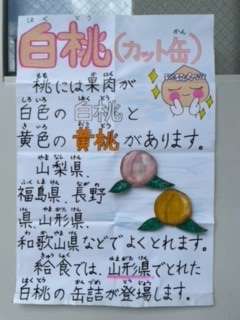 白桃(カット缶)
桃には果肉が
白色の白桃と
黄色の黄桃があります。
山梨県、
福島県、長野
県、山形県、
和歌山県などでよくとれます。
給食では、山形県でとれた
白桃の缶詰が登場します。